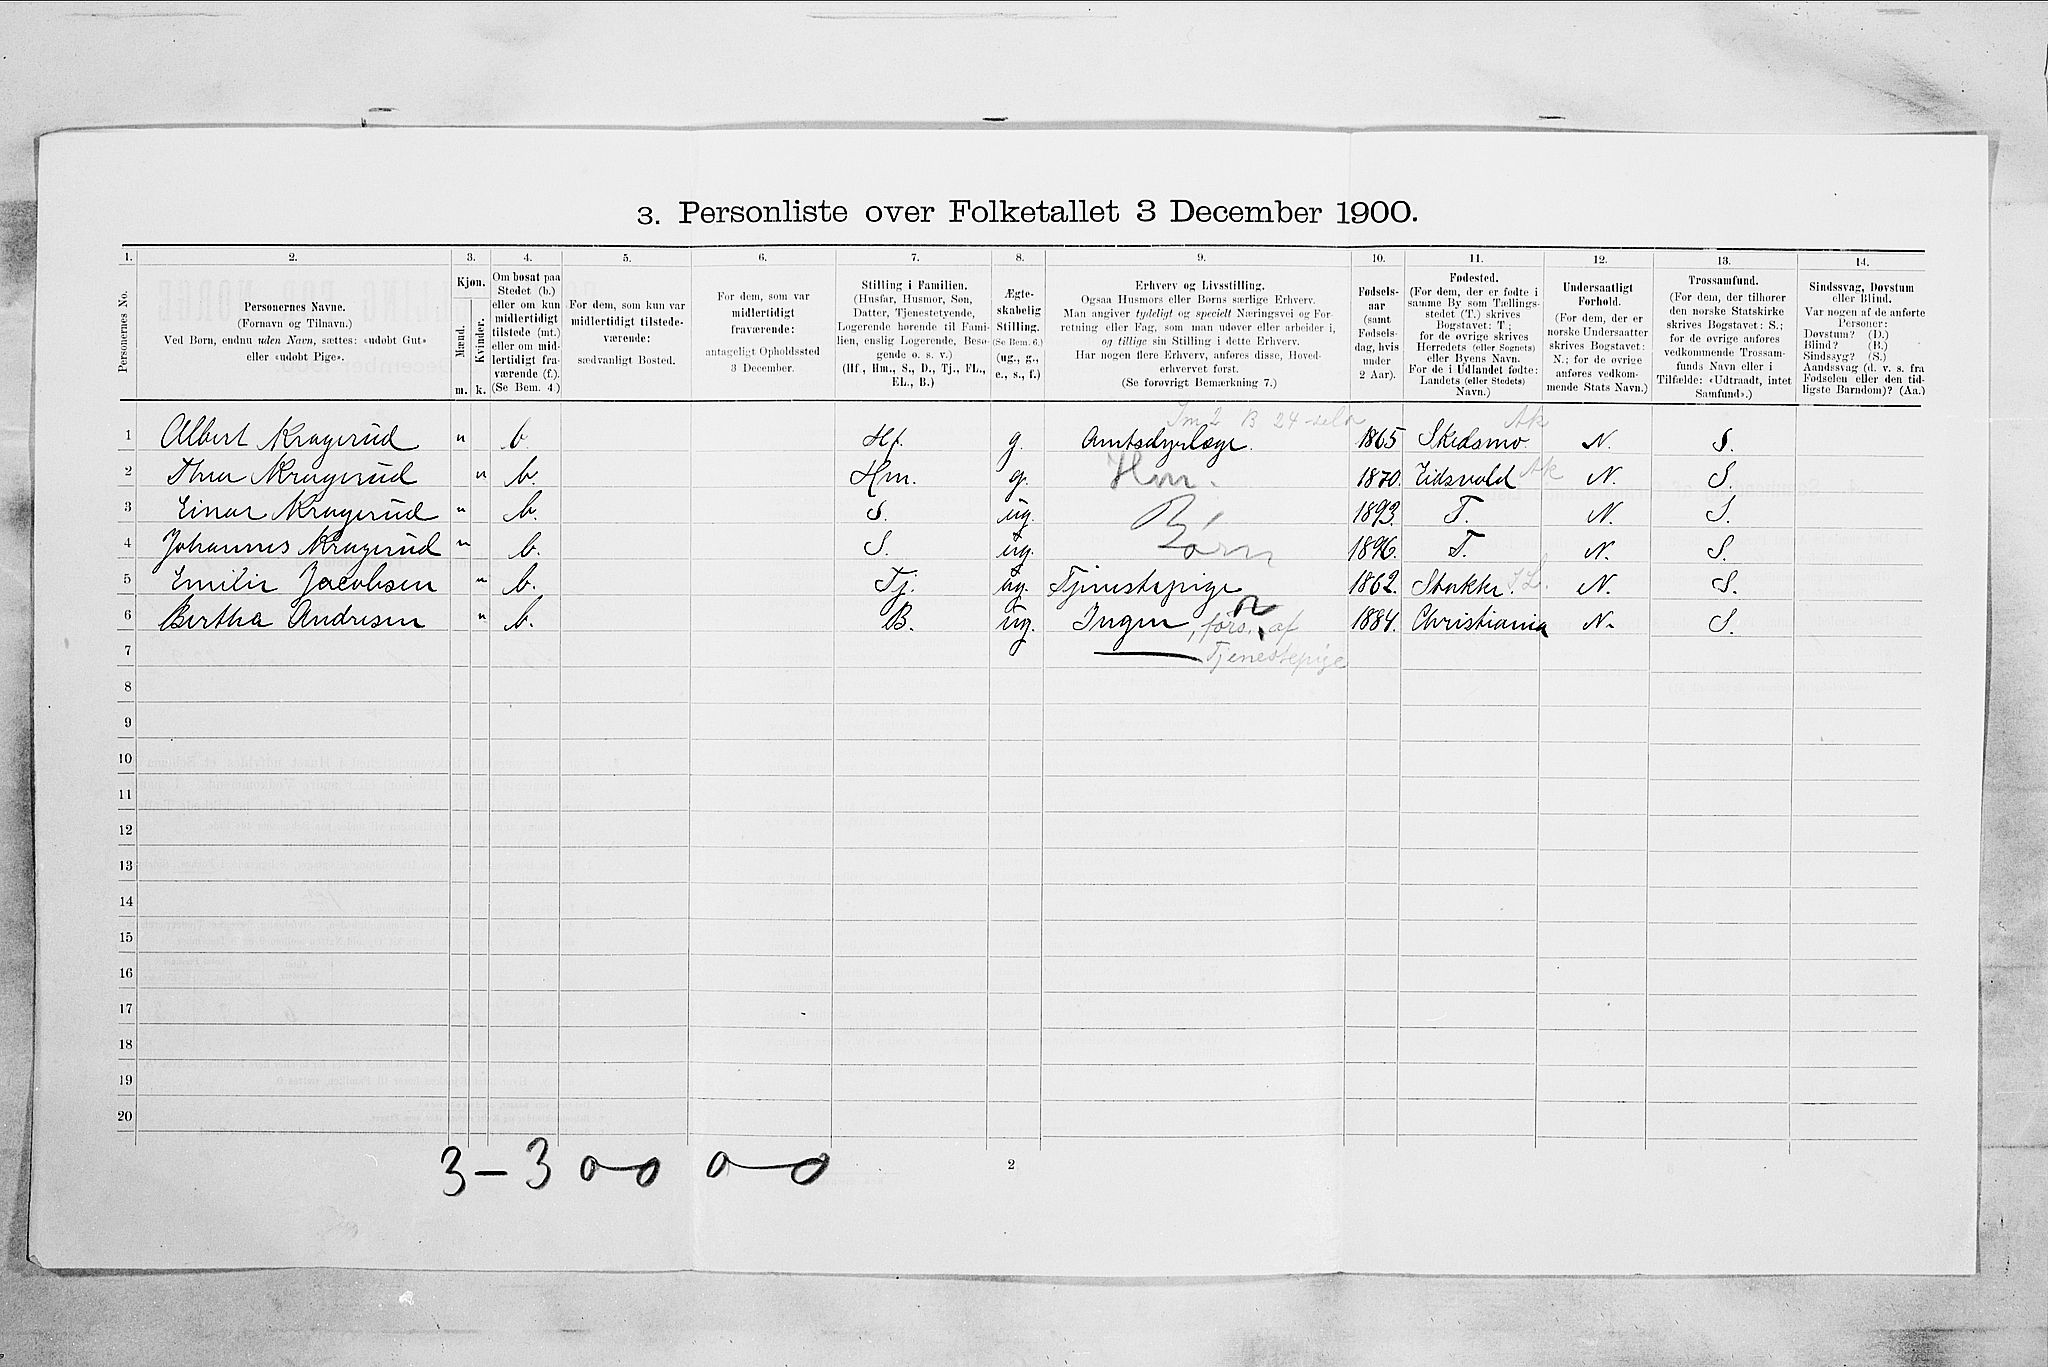 3. Personliste over Folketallet 3 December 1900.
1. 2. 3. 4. 5. 6. 7. 8. 9. 10. 11. 12. 13. 14.
Personernes No.
Personernes Navne.
(Fornavn og Tilnavn.)
Ved Børn, endnu uden Navn, sættes: «udøbt Gut»
eller «udøbt Pige».
Kjøn.
Mænd.
Kvinder.
m. k.
Om bosat paa
Stedet (b.)
eller om kun
midlertidigt
tilstede (mt.)
eller om mid-
lertidigt fra-
værende (f.)
(Se Bem. 4.)
For dem, som kun var
midlertidigt tilstede-
værende:
sædvanligt Bosted.
For dem, som var
midlertidigt
fraværende:
antageligt Opholdssted
3 December.
Stilling i Familien.
(Husfar, Husmor, Søn,
Datter, Tjenestetyende,
Logerende hørende til Fami-
lien, enslig Logerende, Besø-
gende o. s. v.)
(Hf., Hm., S., D., Tj., FL.,
EL., B.)
Ægte-
skabelig
Stilling.
(Se Bem. 6.)
(ug., g.,
e., s., f.)
Erhverv og Livsstilling.
Ogsaa Husmors eller Børns særlige Erhverv.
Man angiver tydeligt og specielt Næringsvei og For-
retning eller Fag, som man udøver eller arbeider i,
og tillige sin Stilling i dette Erhverv.
Har nogen flere Erhverv, anføres disse, Hoved-
erhvervet først.
(Se forøvrigt Bemærkning 7.)
Fødsels-
aar
(samt
Fødsels-
dag, hvis
under
2 Aar).
Fødested.
(For dem, der er fødte i
samme By som Tællings-
stedet (T.) skrives
Bogstavet: T.;
for de øvrige skrives
Herredets (eller Sognets)
eller Byens Navn.
For de i Udlandet fødte:
Landets (eller Stedets)
Navn.)
Undersaatligt
Forhold.
(For dem, der er
norske Undersaatter
skrives Bogstavet:
N.; for de øvrige
anføres vedkom-
mende Stats Navn.)
Trossamfund.
(For dem, der tilhører
den norske Statskirke
skrives Bogstavet: S.;
for de øvrige anføres
vedkommende Trossam-
funds Navn eller i
Tilfælde: «Udtraadt, intet
Samfund».)
Sindssvag, Døvstum
eller Blind.
Var nogen af de anførte
Personer:
Døvstum? (D.)
Blind? (B.)
Sindssyg? (S.)
Aandssvag (d. v. s. fra
Fødselen eller den tid-
ligste Barndom)? (Aa.)
B 24 Ak
1 Albert Kragerud " b. Hf. g. Amtsdyrlæge. 1865 Skedsmo N. S.
2 Thea Kragerud " b. Hm. g. Hm. 1870. Eidsvold Ak N. S.
3 Einar Kragerud " b. S. ug. 1893. T. N. S.
4 Johannes Kragerud " b. S. ug. Børn 1896. T. N. S.
5 Emilie Jacobsen " b. Tj. ug. Tjenestepige 1862. N. S.
6 Bertha Andresen " b. B. ug. Ingen, fors. af 1884. Christiania N. S.
7 Tjenestepige
8
9
10
11
12
13
14
15
16
17
18
19
20
3 - 3 0 0 0 0
2